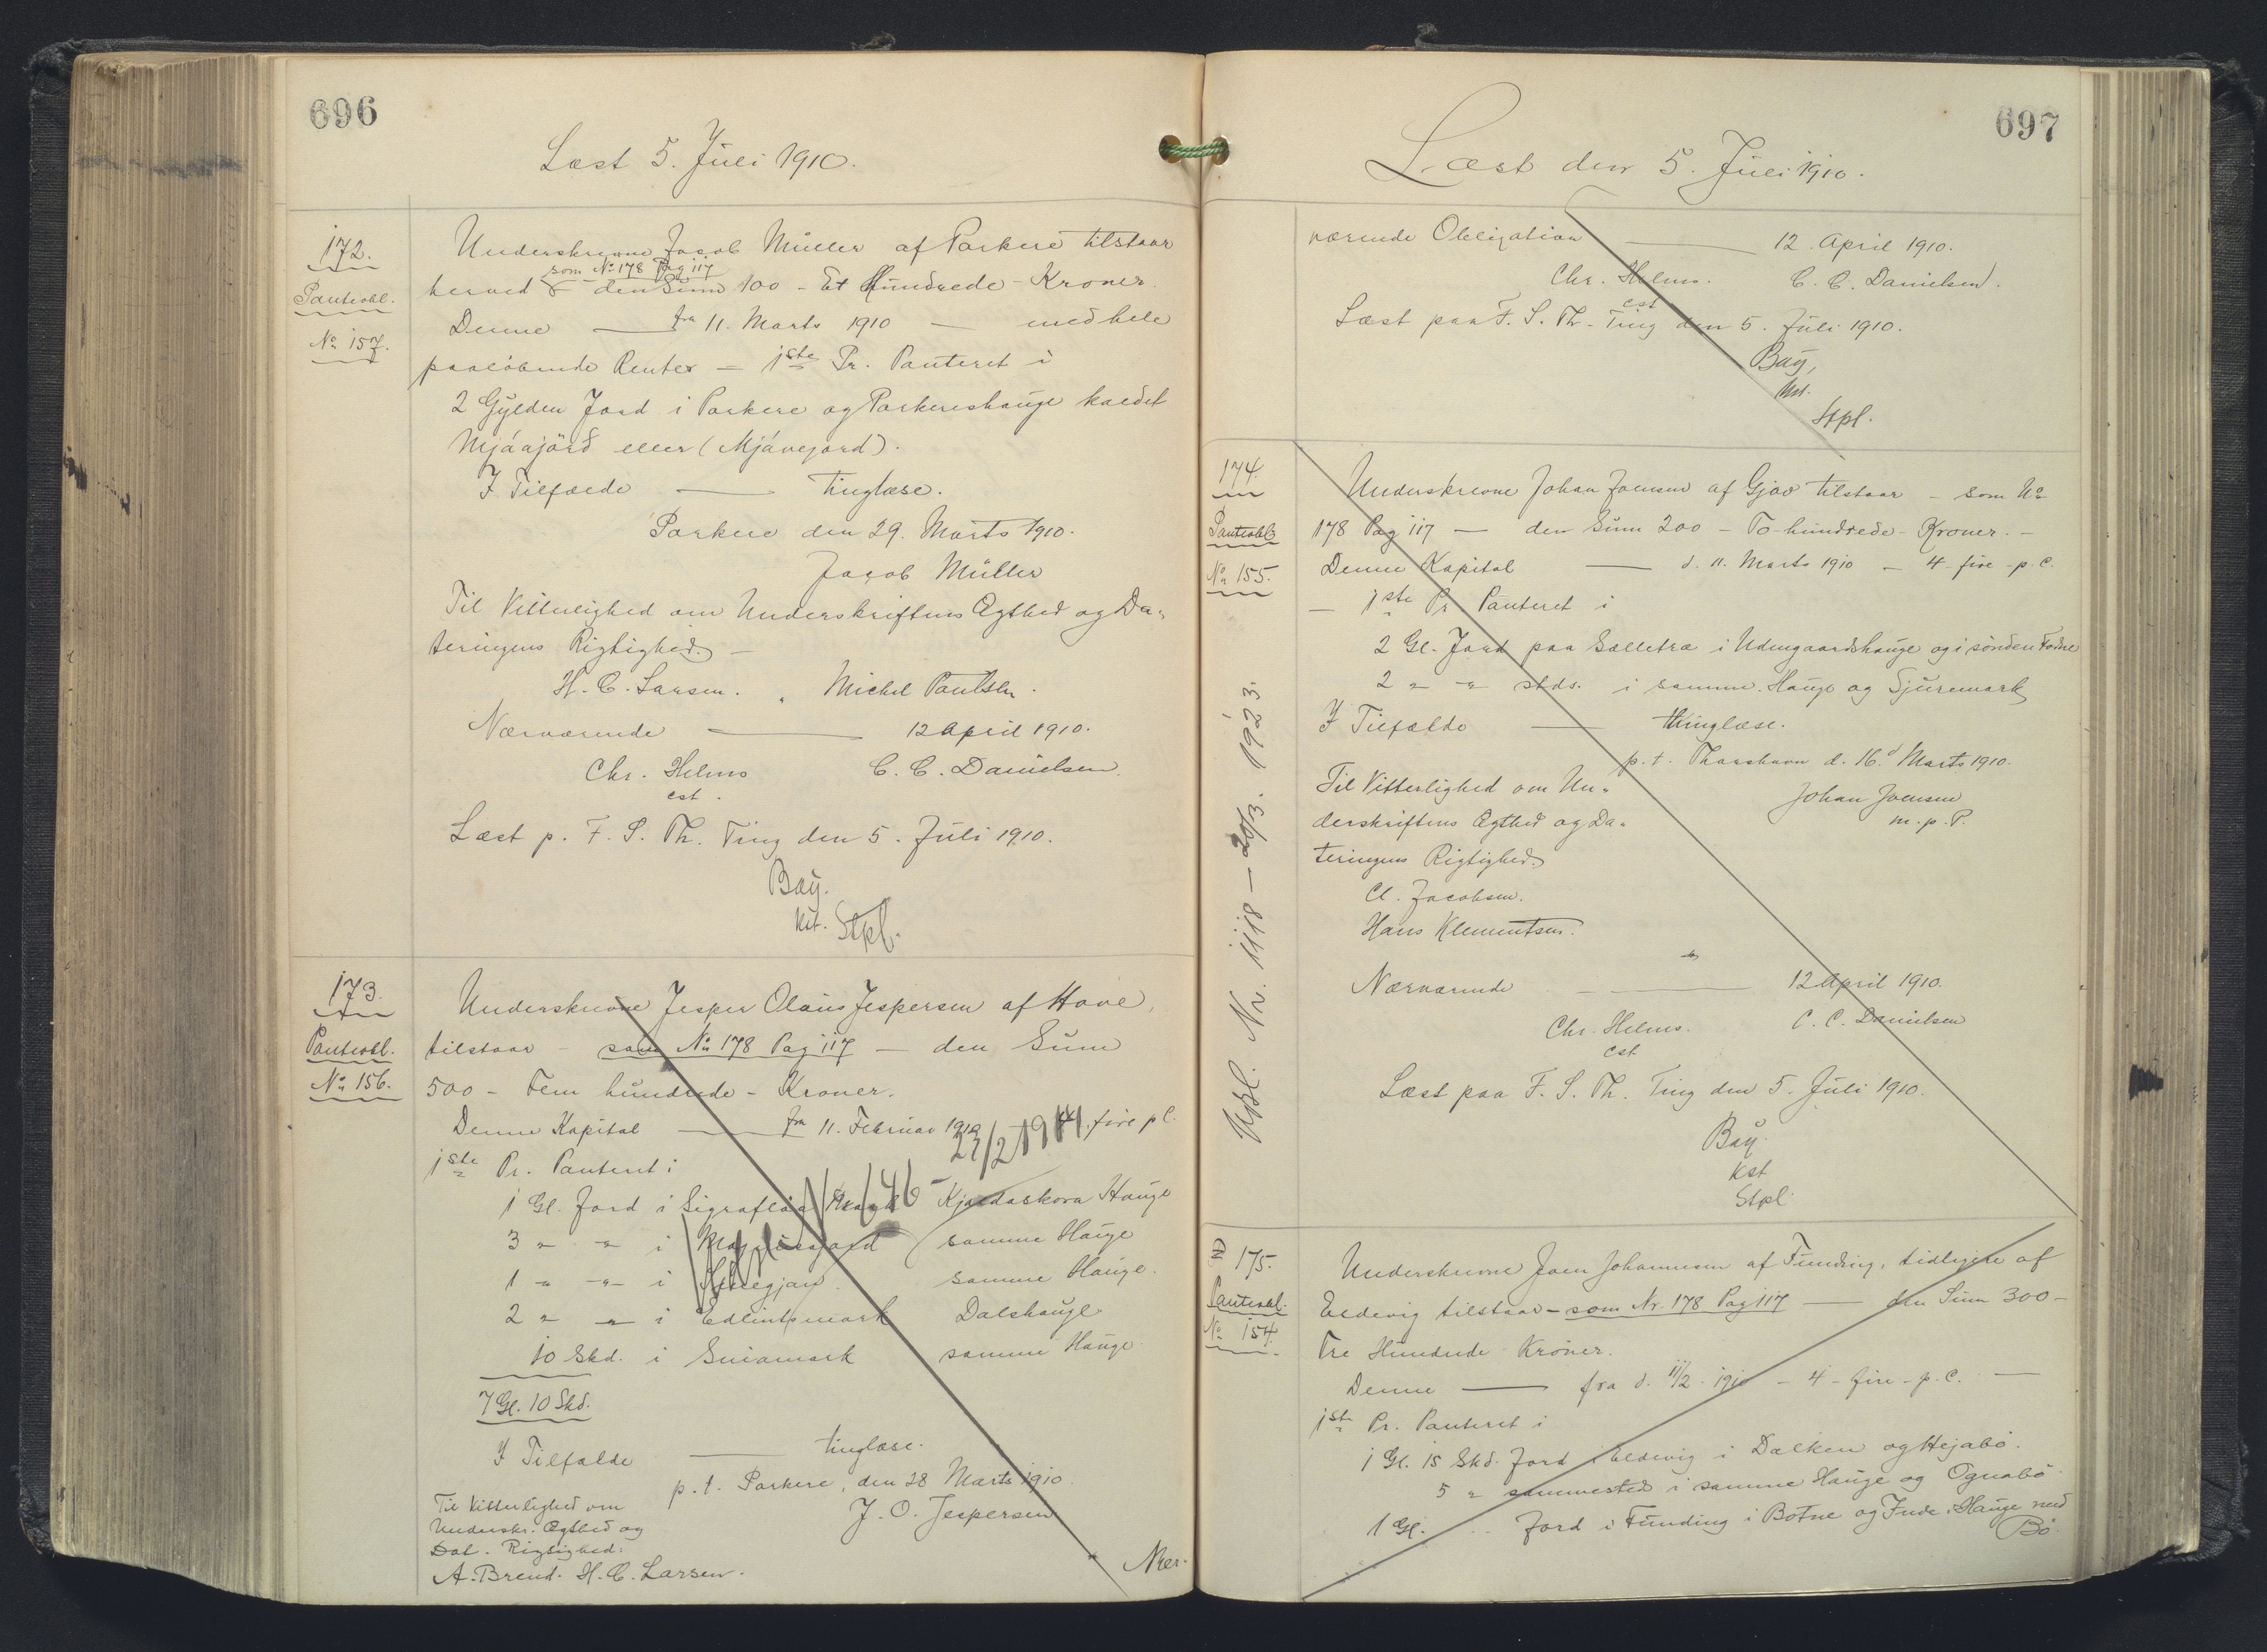 696
Læst 5. Juli 1910.
172.
Panteobl.
No 157.
Underskrevne Jacob Müller af Porkere tilstaar
som No 178 Pag 117
herved – den Sum 100 – Et Hundrede – Kroner.
Denne — fra 11. Marts 1910 — med hele
paaløbende Renter – 1ste Pr. Panteret i
2 Gylden Jord i Porkere og Porkereshauge kaldet
Mjáajörd eller (Mjávejord).
I Tilfælde — tinglæse.
Porkere den 29. Marts 1910.
Jacob Müller
Til Vitterlighed om Underskriftens Ægthed og Da-
teringens Rigtighed. –
H. C. Larsen. Michel Poulsen.
Nærværende — 12 April 1910.
Chr. Helms C. C. Danielsen.
cst.
Læst p. F. S. Th. Ting den 5. Juli 1910.
Bay.
kst. Stpl.
173.
Panteobl.
No 156.
Underskrevne Jesper Olaus Jespersen af Hove,
tilstaar – som No 178 Pag 117 — den Sum
500 – Fem hundrede – Kroner.
Denne Kapital — fra 11. Februar 1910 4 fire p C.
27/2 1941
1ste Pr. Panteret i
1 Gl. Jord i Kjældaskora Hauge
3 " " i samme Hauge
1 " " i samme Hauge.
2 " " i Dalshauge
10 Skd. i samme Hauge.
7 Gl. 10 Skd.
I Tilfælde — tinglæse.
p. t. Porkere, den 28 Marts 1910.
Til Vitterlighed om
Underskr. Ægthed og
Dat. Rigtighed:
J. O. Jespersen
A. Brend. H. C. Larsen.
Nær-
697
Læst den 5. Juli 1910.
værende Obligation — 12 April 1910.
Chr. Helms. C. C. Danielsen.
cst
Læst paa F. S. Th. Ting den 5. Juli 1910.
Bay,
kst.
Stpl.
174.
Panteobl
No 155.
Udsl. Nr. 1118 – 20/3. 1923.
Underskrevne Johan Joensen af Gjov tilstaar – som No
178 Pag 117 — den Sum 200 – To hundrede – Kroner. –
Denne Kapital — d. 11. Marts 1910 – 4 – fire – p. C.
– 1ste Pr Panteret i
2 Gl. Jord paa Selletræ i Udengaardshauge og i sönden
2 " " stds. i samme Hauge og Sjuremark
I Tilfælde — thinglæse.
p. t. Thorshavn d. 16d Marts 1910.
Til Vitterlighed om Un-
derskriftens Ægthed og Da-
teringens Rigtighed
Johan Joensen
m. p. P.
Cl. Jacobsen.
Hans Klementsen.
Nærværende — 12 April 1910.
Chr. Helms. C. C. Danielsen
cst
Læst paa F. S. Th. Ting den 5. Juli 1910.
Bay.
kst
Stpl.
175.
Panteobl.
No 154.
Underskrevne Joen Johannesen af Funding, tidligere af
Eldevig tilstaar – som Nr. 178 Pag 117 — den Sum 300 –
Tre Hundrede Kroner.
Denne — fra d. 11/2 1910 – 4 – fire – p. C. —
1ste Pr. Panteret i
1 Gl. 15 Skd. Jord Eldevig i Dalken og Hejabö.
5 " sammesteds i samme Hauge og Ognabö
1 Gl. Jord i Funding i Botne og Inde. Hauge med
Bö.